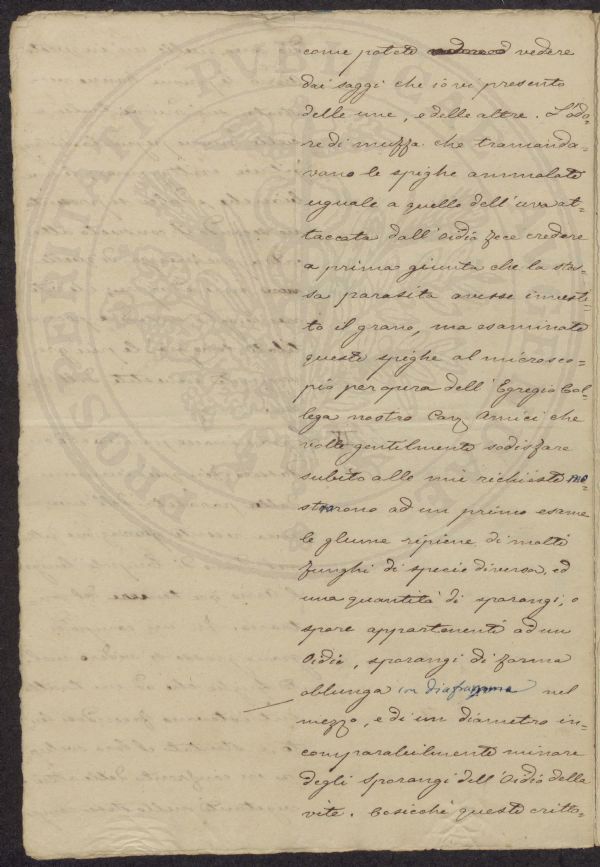 come potete vedere
dai saggi che io vi presento
delle une, e delle altre. L'odo-
re di muffa che tramanda-
vano le spighe ammalate
uguale a quello dell'uva at-
taccata dall'Oidio fece credere
a prima giunta che la stes-
sa parasita avesse investi-
to il grano, ma esaminate
queste spighe al microsco-
pio per opera dell'Egregio Col-
lega nostro Cav. Amici che
volle gentilmente sodisfare
subito alle mie richieste mo-
strarono ad un primo esame
le glume ripiene di molti
funghi di specie diversa, ed
una quantità di sporangi, o
spore appartenenti ad un
Oidio, sporangi di forma
oblunga con diaframma nel
mezzo, e di un diametro in-
comparabilmente minore
degli sporangi dell'Oidio della
vite. Cosicchè queste critto-